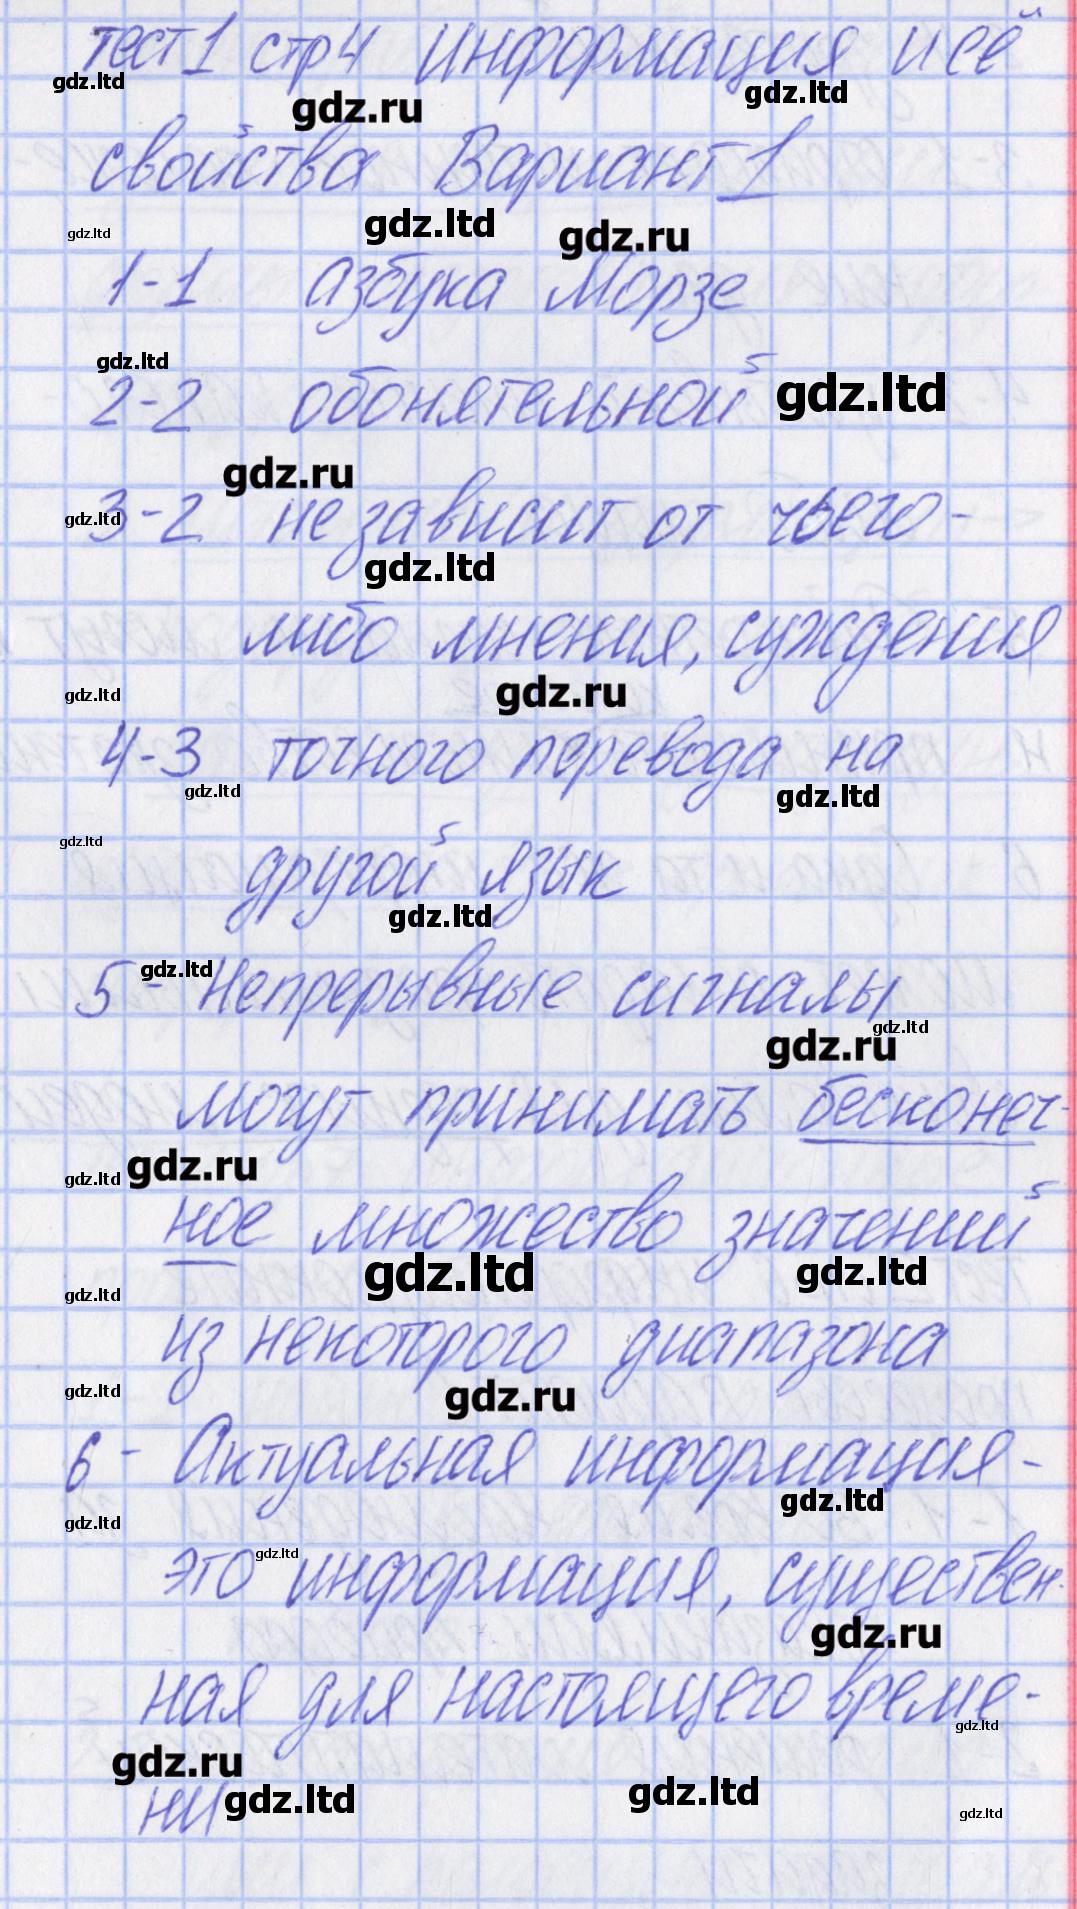 тест 1 стр 4 информация и её
gdz.ltd gdz.ru gdz.ltd
свойства Вариант 1
gdz.ltd gdz.ltd gdz.ru
1-1 азбука Морзе
gdz.ltd
2-2 обонятельной gdz.ltd
gdz.ru
gdz.ltd
3-2 не зависит от чьего-
gdz.ltd
либо мнения, суждения
gdz.ltd gdz.ru
4-3 точного перевода на
gdz.ltd gdz.ltd
gdz.ltd
другой язык
gdz.ltd
gdz.ltd
5 - Непрерывные сигналы
gdz.ltd
gdz.ru
могут принимать бесконеч-
gdz.ltd gdz.ru
ное множество значений
gdz.ltd gdz.ltd
gdz.ltd
из некоторого диапазона
gdz.ltd gdz.ru
6 - Актуальная информация -
gdz.ltd
gdz.ltd
gdz.ltd
это информация, существен-
gdz.ru
ная для настоящего време-
gdz.ltd
gdz.ru
ни gdz.ltd gdz.ltd gdz.ltd